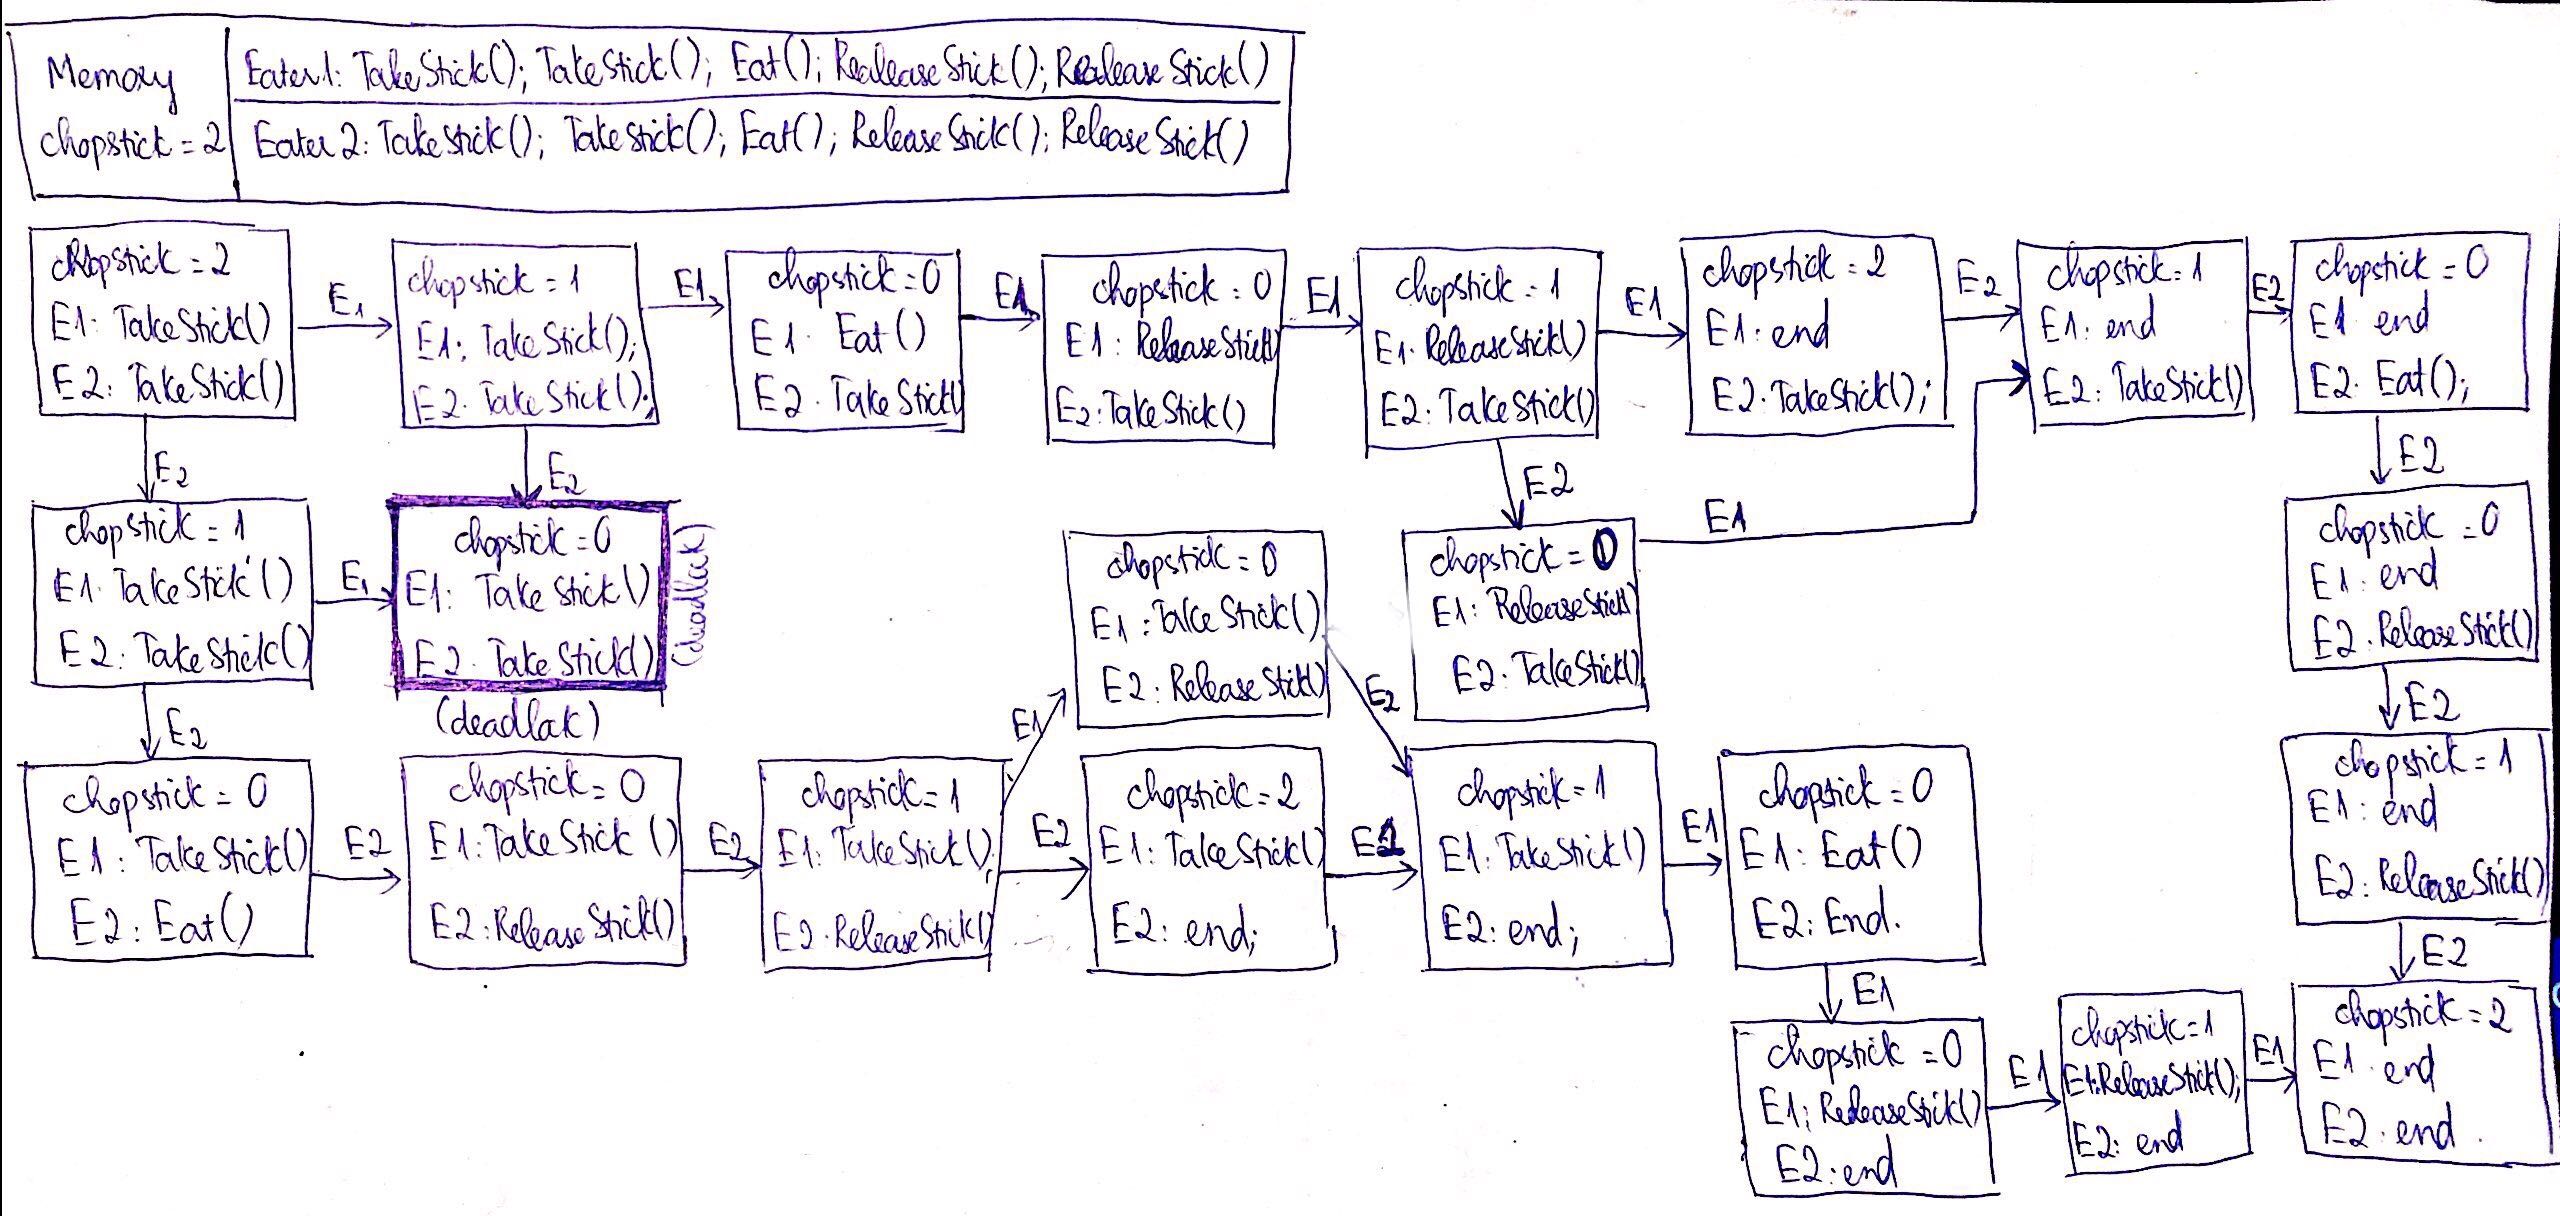 Memory
chopstick = 2
Eater1: TakeStick(); TakeStick(); Eat(); RealeaseStick(); RealeaseStick()
Eater 2: TakeStick(); TakeStick(); Eat(); ReleaseStick(); ReleaseStick()
chopstick = 2
E1: TakeStick()
E2: TakeStick()
E1
chopstick = 1
E1: TakeStick();
E2. TakeStick();
E1
chopstick = 0
E1. Eat()
E2. TakeStick()
E1
chopstick: 0
E1: ReleaseStick()
E2: TakeStick()
E1
chopstick: 1
E1. ReleaseStick()
E2: TakeStick()
E1
chopstick = 2
E1: end
E2. TakeStick();
E2
chopstick: 1
E1: end
E2: TakeStick()
E2
chopstick = 0
E1 end
E2. Eat();
E2
E2
E2
E2
chopstick = 1
E1. TakeStick()
E2: TakeStick()
E1
chopstick = 0
E1: TakeStick()
E2. TakeStick()
(deadlak)
(deadlak)
chopstick = 0
E1: TakeStick()
E2: ReleaseStick()
E2
chopstick = 0
E1: ReleaseStick()
E2: TakeStick()
E1
chopstick = 0
E1: end
E2. ReleaseStick()
E2
E2
E1
chopstick = 0
E1: TakeStick()
E2: Eat()
E2
chopstick = 0
E1: TakeStick ()
E2: ReleaseStick()
E2
chopstick = 1
E1: TakeStick();
E2. ReleaseStick()
E2
chopstick = 2
E1: TakeStick()
E2: end;
chopstick = 1
E1: TakeStick()
E2: end;
E1
chopstick = 0
E1: Eat()
E2: End.
chopstick = 1
E1: end
E2: ReleaseStick()
E1
E2
chopstick = 0
E1: ReleaseStick()
E2: end
E1
chopstick = 1
E1: ReleaseStick();
E2: end
E1
chopstick = 2
E1. end
E2. end.